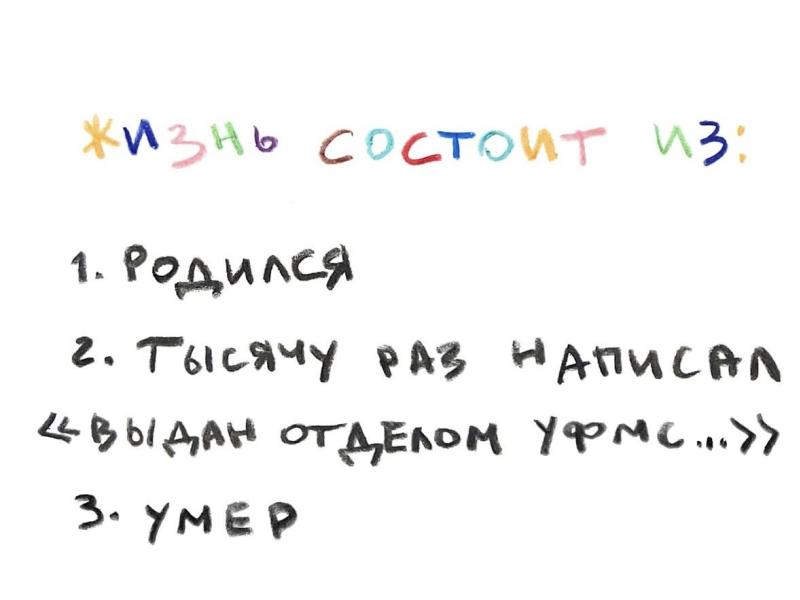 Жизнь состоит из:
1. Родился
2. Тысячу раз написал
«Выдан отделом УФМС...»
3. Умер